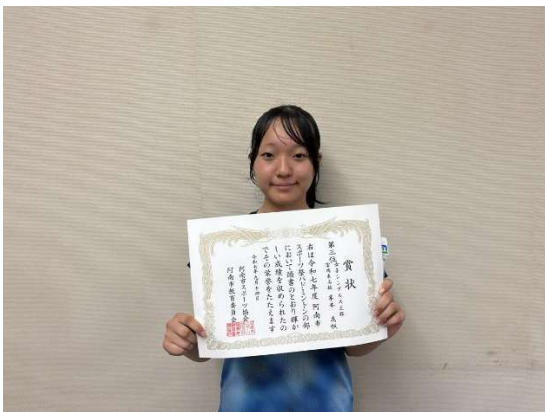 賞状
第三位 女子シングルス三部
右は令和七年度 阿南市
スポーツ祭バドミントンの部
において頭書のとおり輝か
しい成績を収められたの
でその栄誉をたたえます
令和七年九月十四日
阿南市スポーツ協会
阿南市教育委員会